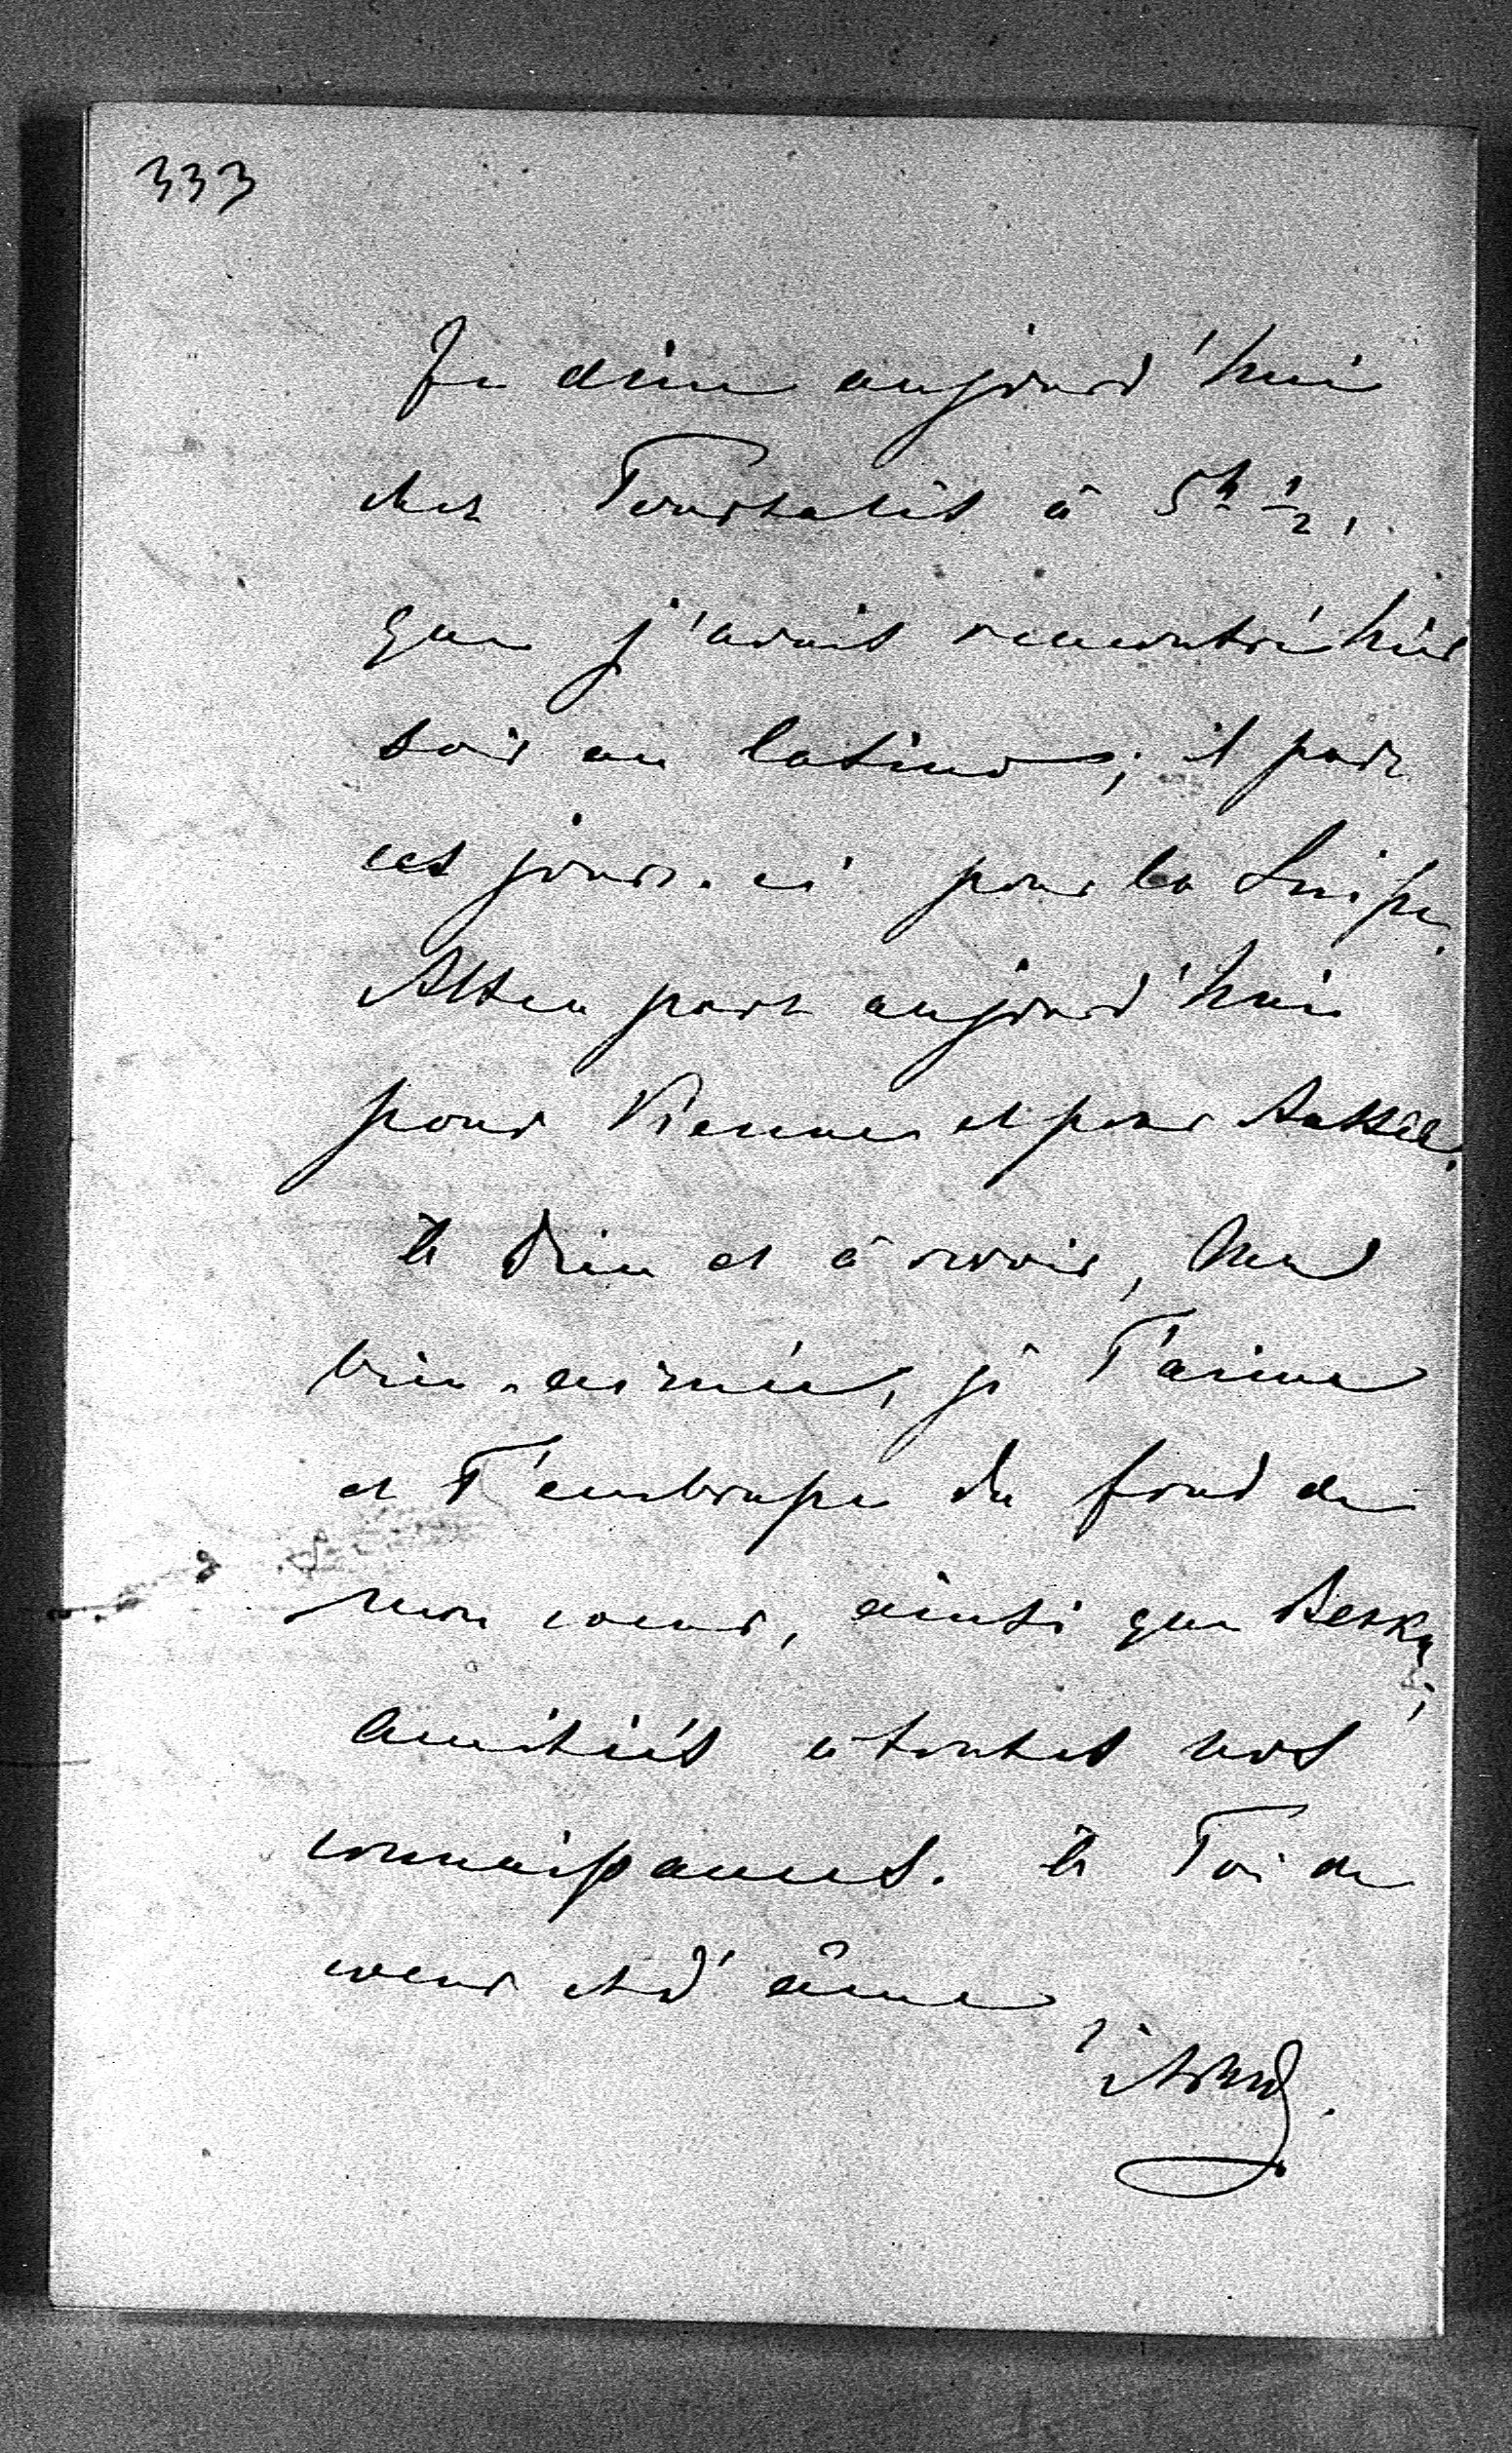 333
Je dine aujourd'hui
chez Pourtalès à 5h 1/2,
que j'avais rencontré hier
soir au Casino; il part
ces jours-ci pour la Suisse.
Alten part aujourd'hui
pour Vienne et pour
à Dieu et à revoir, Ma
bien-aimée, je T'aime
et T'embrasse du fond de
mon coeur, ainsi que
amitiés à toutes nos
connaissances. à Toi de
coeur et d'âme